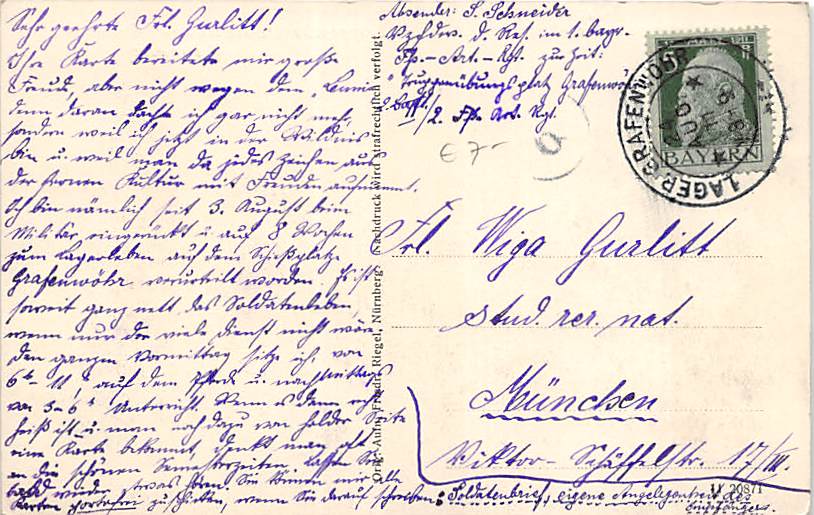 Sehr geehrte Frl. Gurlitt!
Ihre Karte bereitete mir große
Freude, aber nicht wegen dem
denn daran dachte ich gar nicht mehr,
sondern weil ich jetzt in der Wildnis
bin u. weil man da jedes Zeichen aus
der fernen Kultur mit Freuden aufnimmt.
Ich bin nämlich seit 3. August beim
Militär eingerückt u. auf 8 Wochen
zum Lagerleben auf dem Schießplatze
Grafenwöhr verurteilt worden. Es ist
soweit ganz nett das Soldatenleben,
wenn nur der viele Dienst nicht wäre.
Den ganzen Vormittag sitze ich, von
6h - 11h auf dem Pferde u. nachmittags
von 3-6h Unterricht. Wenn es dann recht
heiß ist u. man noch dazu von holder Seite
eine Karte bekommt, denkt man oft
an die schönen Semesterzeiten. Lassen Sie
bald wieder etwas hören. Sie können mir alle
Karten portofrei zuschicken, wenn Sie darauf schreiben: Soldatenbrief, eigene Angelegenheit des
Empfängers.
Orig.-Aufn. Friedr. Riegel, Nürnberg. Nachdruck wird strafrechtlich verfolgt.
Absender: S. Schneider
Vzfdw. d. Res. im 1. bayr.
Fß-Art.-Rgt. zur Zeit:
Truppenübungsplatz Grafenwöhr
2. Batt.
II/2. Fß. Art. Rgt.
€ 7-
BAYERN
LAGER GRAFENWOEHR
AUG
Frl. Wiga Gurlitt
stud. rer. nat.
München
Viktor-Schäffelstr. 17/III.
20871